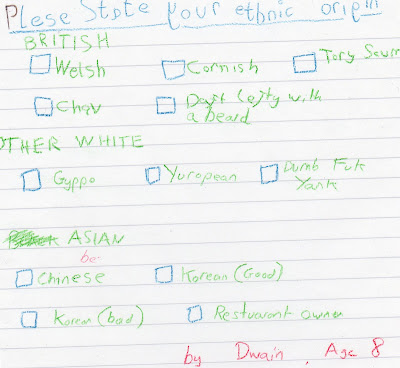 Plese State your ethnic origin
BRITISH
Welsh Cornish Tory Scum
Chav Daft lefty with
a beard
OTHER WHITE
Gyppo Yuropean Dumb Fuk
Yank
ASIAN
be
Chinese Korean (Good)
Korean (bad) Restuarant owner
by Dwain, Age 8